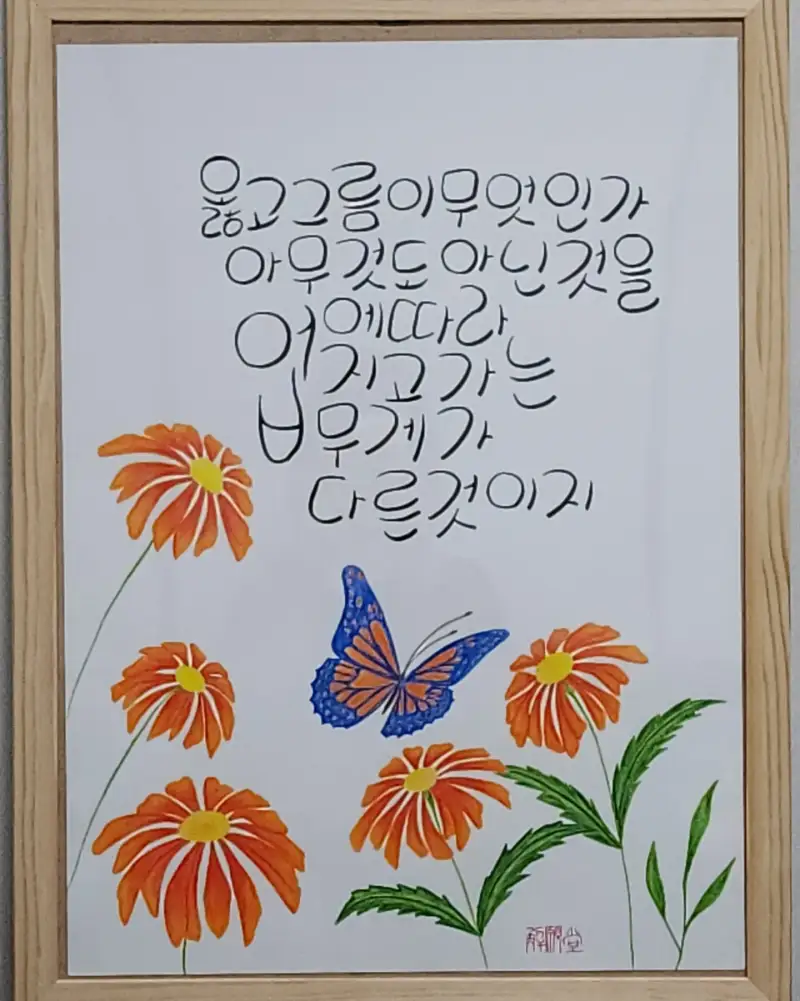 옳고그름이무엇인가
아무것도아닌것을
업에따라
지고가는
무게가
다른것이지
解願堂